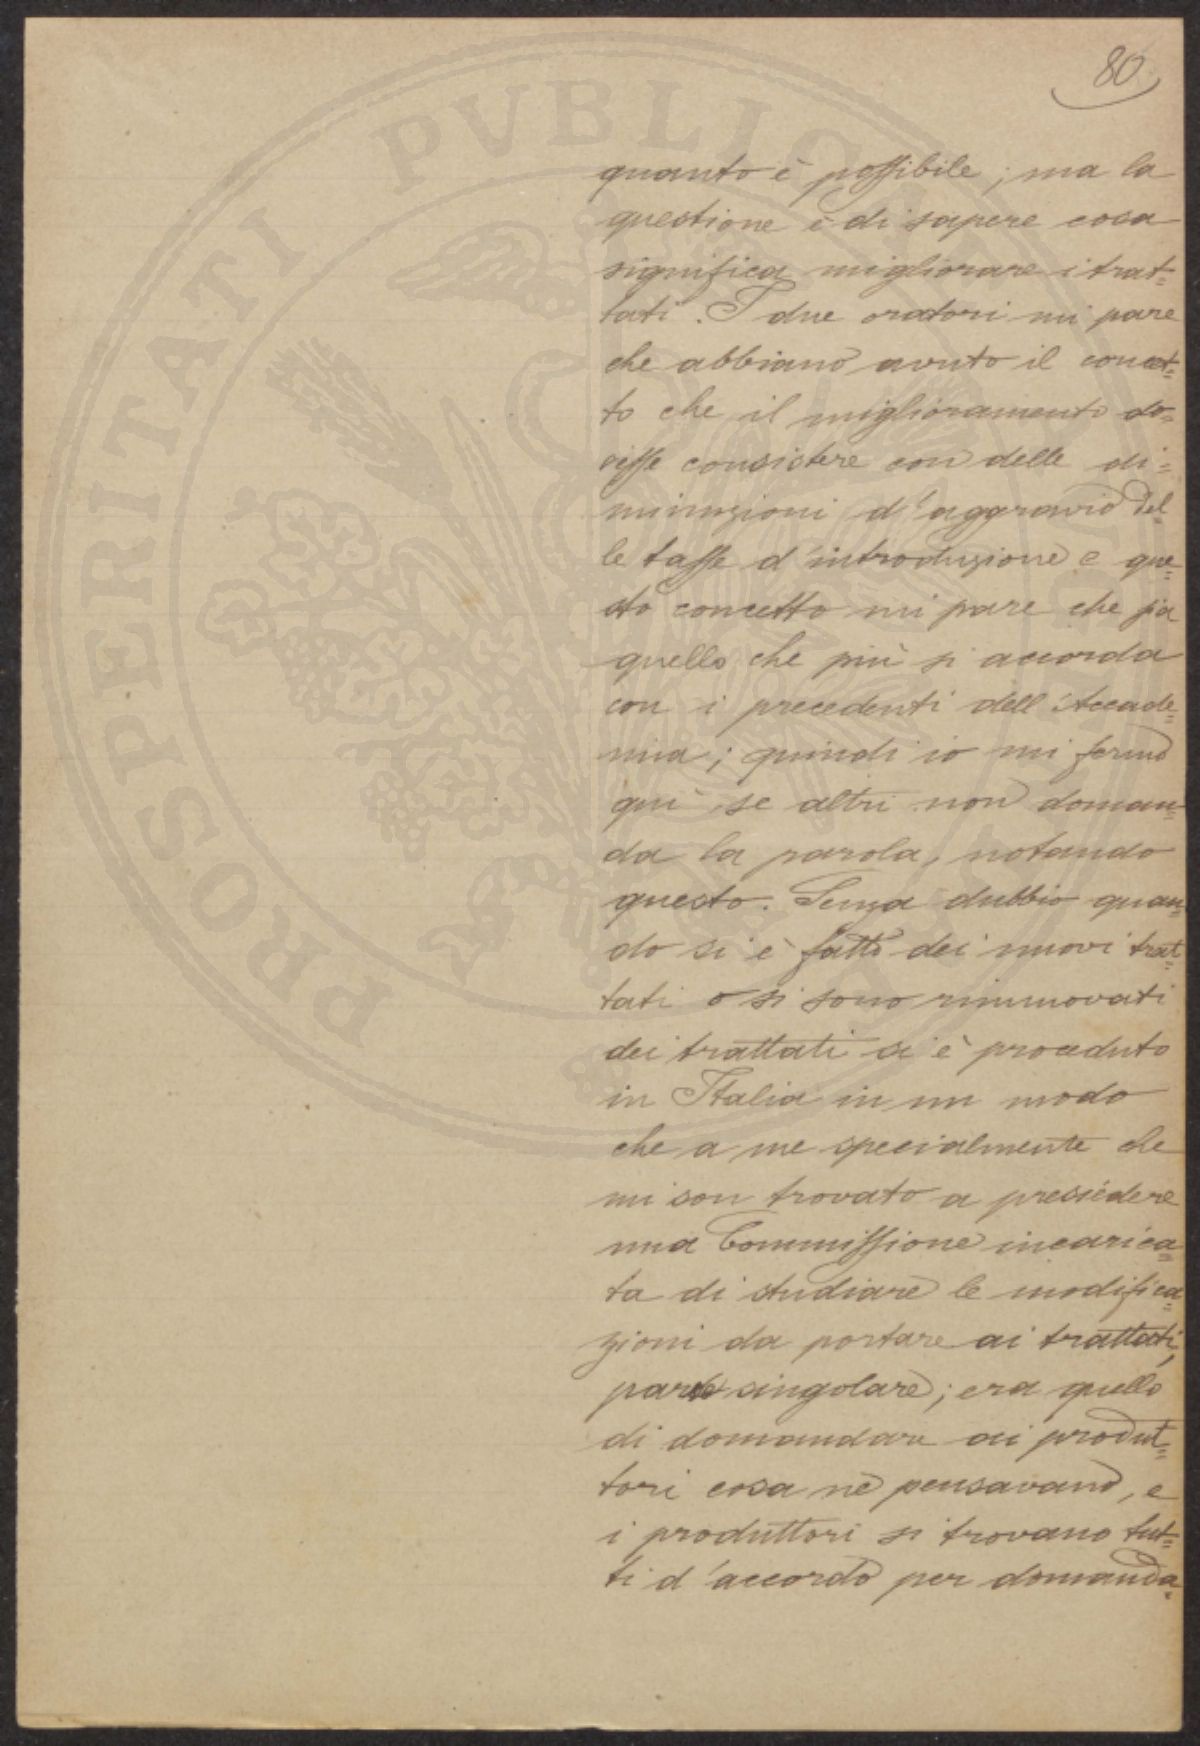 80
quanto è possibile; ma la
questione è di sapere cosa
significa migliorare i trat=
tati. I due oratori mi pare
che abbiano avuto il concet=
to che il miglioramento do=
vesse consistere con delle di=
minuzioni d'aggravio del=
le tasse d'introduzione e que=
sto concetto mi pare che sia
quello che più si accorda
con i precedenti dell'Accade=
mia; quindi io mi fermo
quì, se altri non doman=
da la parola, notando
questo. Senza dubbio quan=
do si è fatto dei nuovi trat=
tati o si sono rinnnovati
dei trattati si è proceduto
in Italia in un modo
che a me specialmente che
mi son trovato a presiedere
una Commissione incarica=
ta di studiare le modifica=
zioni da portare ai trattati,
parve singolare; era quello
di domandare ai produt=
tori cosa ne pensavano, e
i produttori si trovano tut=
ti d'accordo per domanda=
PROSPERITATI PVBLICAE